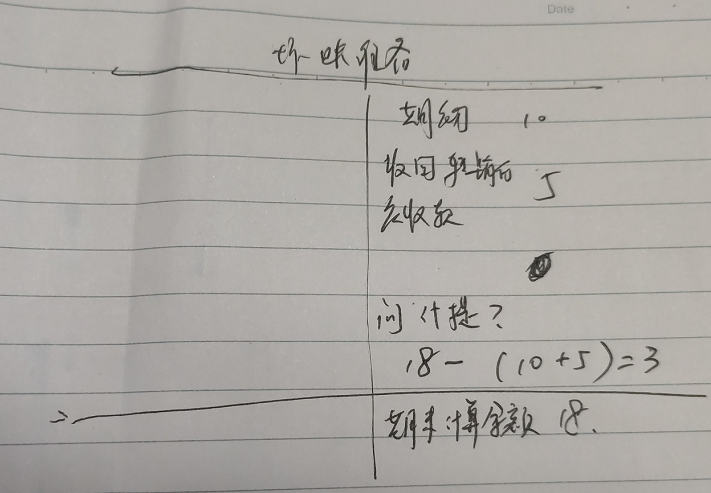 Date
坏账准备
期初 10
收回转销的 5
应收款
问计提?
18-(10+5)=3
期末计算余额 18.